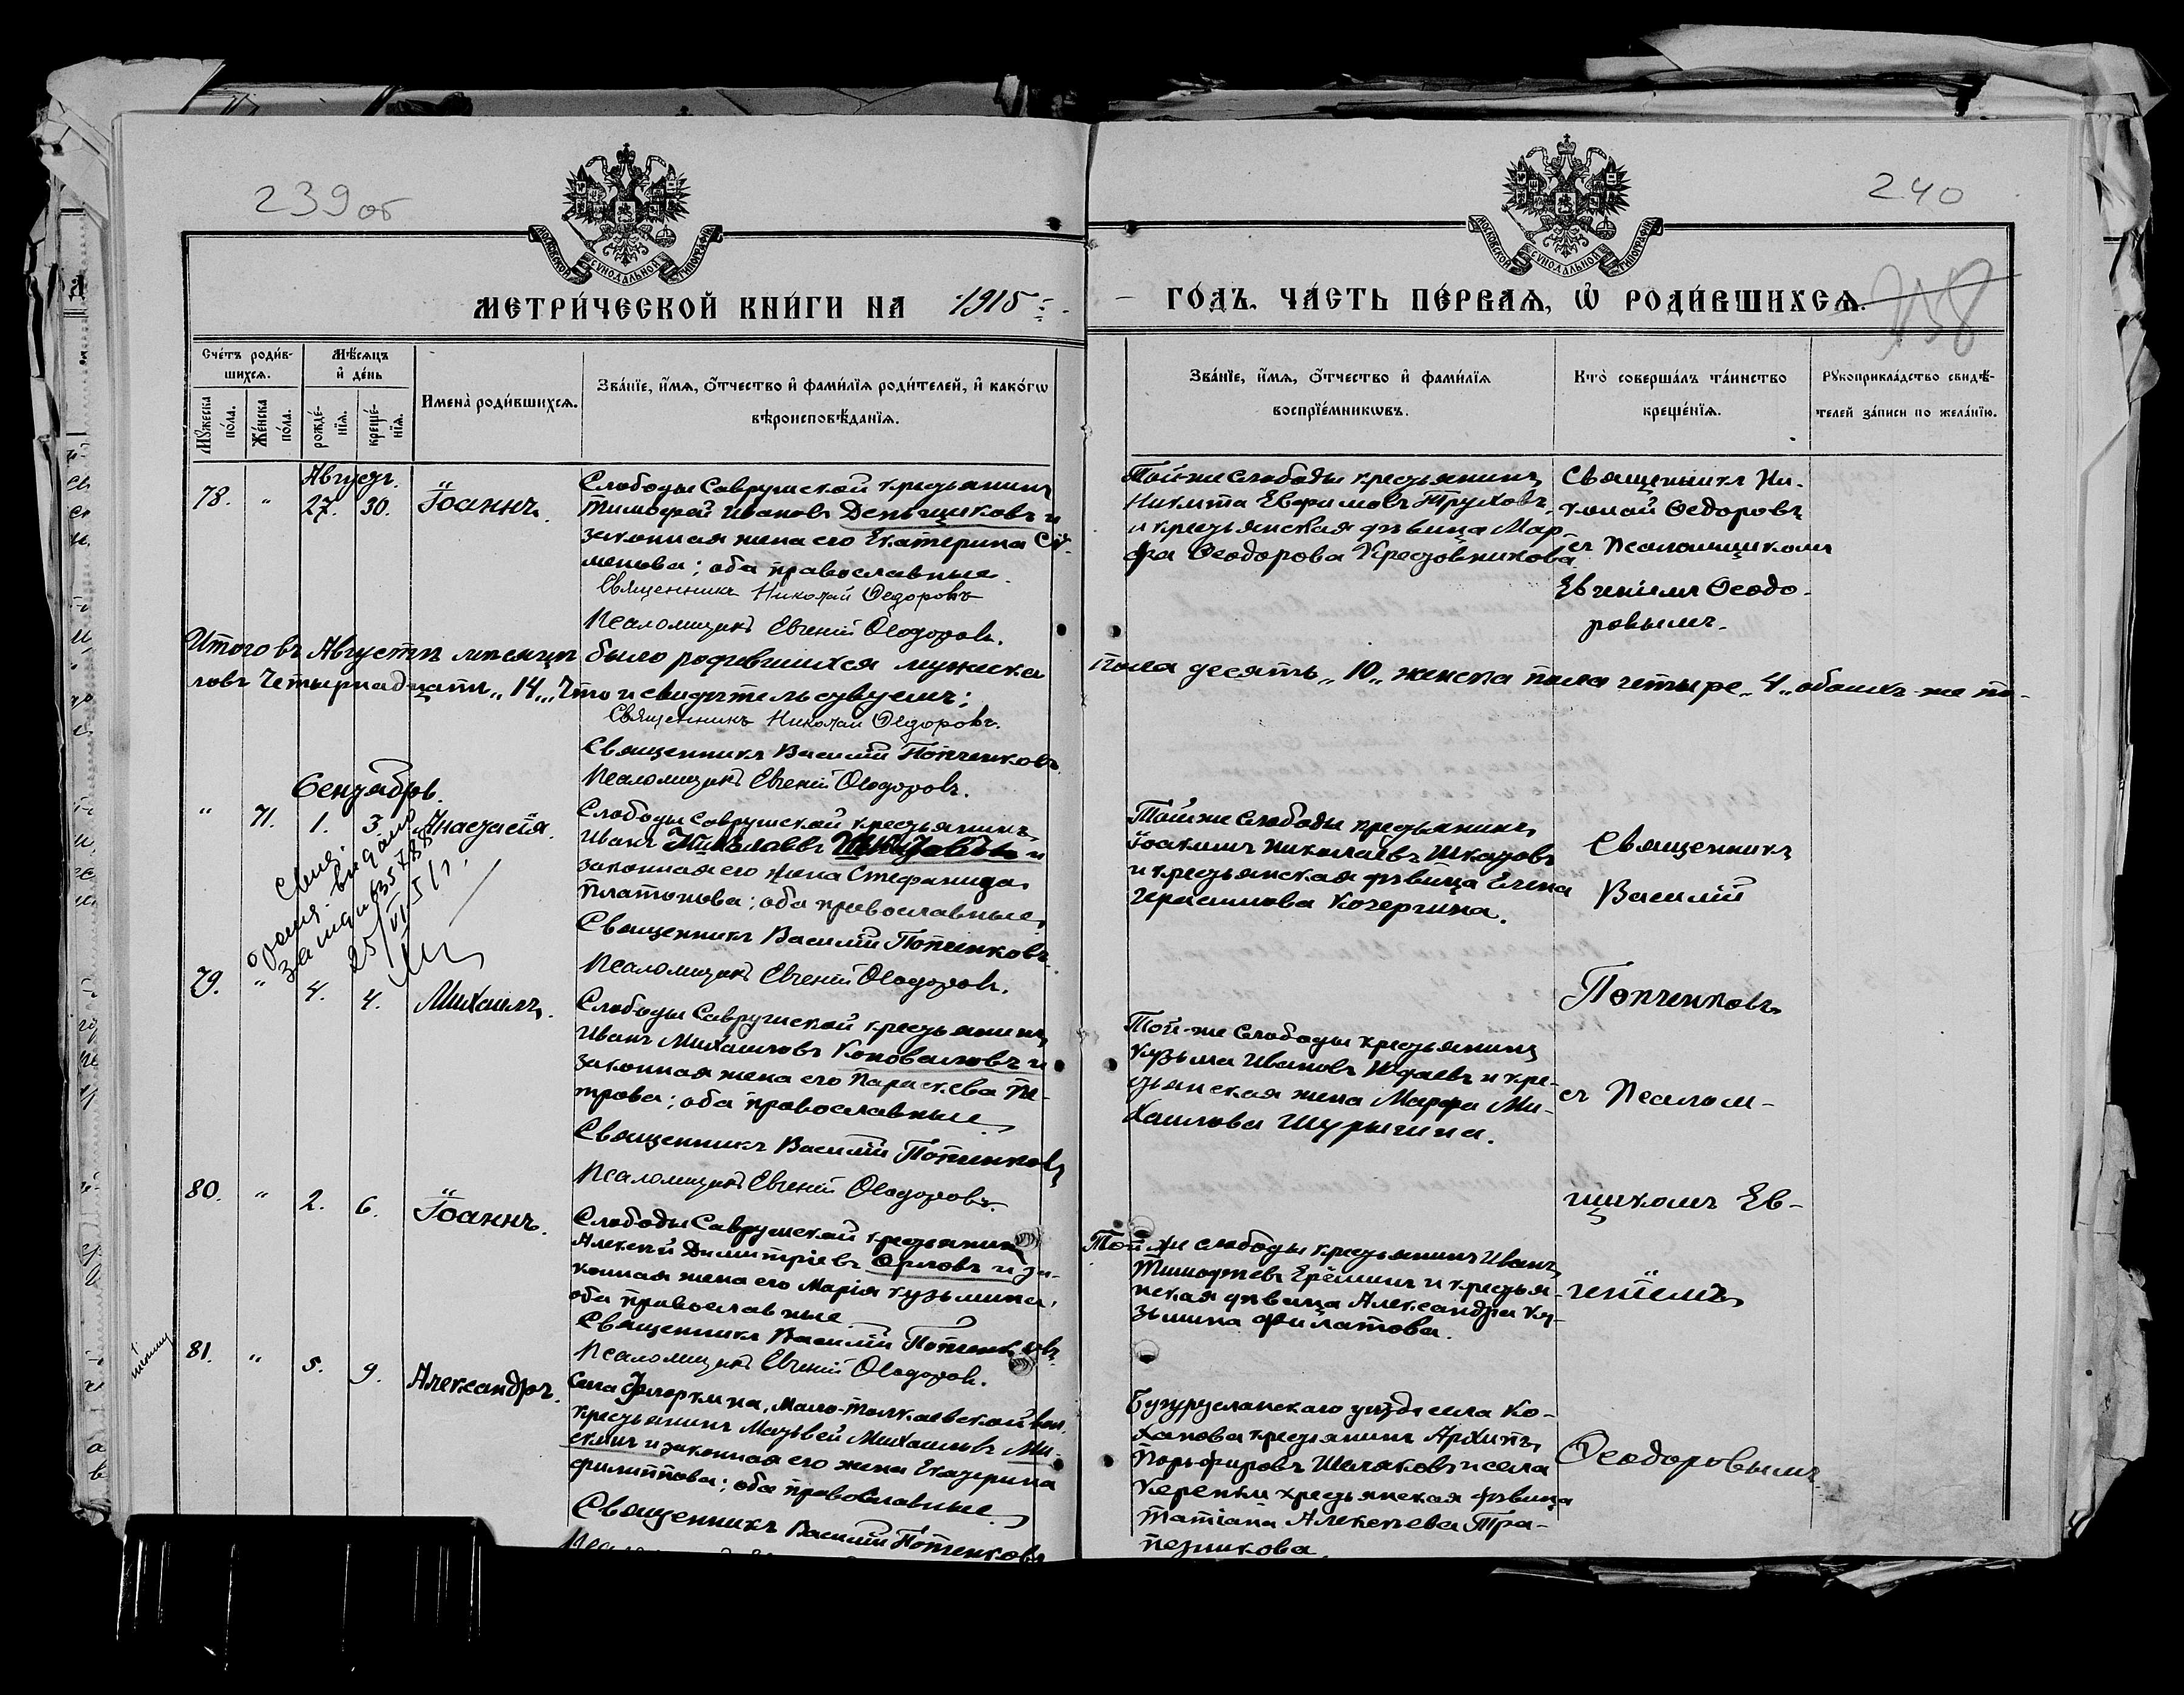 239об
240
МОСКОВСКОЙ СѴНОДАЛЬНОЙ ТИПОГРАФІИ
МОСКОВСКОЙ СѴНОДАЛЬНОЙ ТИПОГРАФІИ
МЕТРИ́ЧЕСКОЙ КНИ́ГИ НА 1915
ГО́ДЪ. ЧА́СТЬ ПЕ́РВАѦ, Ѿ РОДИ́ВШИХСѦ.
238
Сче́тъ роди́в-
шихсѧ.
Мꙋ́жеска по́ла.
Же́нска по́ла.
Мѣ́сѧцъ
и҆ де́нь
рожде́-
нїѧ.
креще́-
нїѧ.
И҆мена̀ роди́вшихсѧ.
Зва́нїе, и҆́мѧ, ѻ҆́тчество и҆ фами́лїѧ роди́телей, и҆ како́гѡ
вѣроисповѣ́данїѧ.
Зва́нїе, и҆́мѧ, ѻ҆́тчество и҆ фами́лїѧ
воспрїе́мникѡвъ.
Кто̀ соверша́лъ та́инство
креще́нїѧ.
Рꙋкоприкла́дство свидѣ́-
телей за́писи по жела́нїю.
Августъ.
78. " 27. 30. Іоаннъ.
Слободы Саврушской крестьянинъ
Тимофей Ивановъ Деньщиковъ и
законная жена его Екатерина Си-
менова; оба православные.
Священникъ Николай Ѳедоровъ
Псаломщикъ Евгеній Ѳеодоровъ.
Той-же слободы крестьянинъ
Никита Евфимовъ Труховъ
и крестьянская дѣвица Мар-
фа Ѳеодорова Крестовникова
Священникъ Ни-
колай Ѳедоровъ
съ Псаломщикомъ
Евгеніемъ Ѳеодо-
ровымъ.
Итого въ Августѣ мѣсяцѣ было родившихся мужеска пола десять „10„ женска пола четыре „4„ обоихъ же по-
ловъ четырнадцать „14„ Что и свидѣтельствуемъ:
Священникъ Николай Ѳедоровъ.
Священникъ Василій Потченковъ
Псаломщикъ Евгеній Ѳеодоровъ.
Сентябрь.
" 71. 1. 3. Анастасія.
Слободы Саврушской крестьянинъ
Иванъ Николаевъ Шкатовъ и
законная его жена Стефанида
Платонова; оба православные
Священникъ Василій Потченковъ
Псаломщикъ Евгеній Ѳеодоровъ.
Той же слободы крестьянинъ
Іоакимъ Николаевъ Шкатовъ
и крестьянская дѣвица Елена
Герасимова Кочергина.
Священникъ
Василій
Потченковъ
съ Псалом-
щикомъ Ев-
геніемъ
Ѳеодоровымъ
выдано
79. " 4. 4. Михаилъ.
Слободы Саврушской крестьянинъ
Иванъ Михаиловъ Коноваловъ и
законная жена его Параскева Пе-
трова; оба православные
Священникъ Василій Потченковъ
Псаломщикъ Евгеній Ѳеодоровъ.
Той-же слободы крестьянинъ
Кузьма Ивановъ Ждаевъ и кре-
стьянская жена Марфа Ми-
хаилова Шурыгина.
80. " 2. 6. Іоаннъ.
Слободы Саврушской крестьянинъ
Алексѣй Димитріевъ Орловъ и за-
конная жена его Марія Кузьмина;
оба православные
Священникъ Василій Потченковъ
Псаломщикъ Евгеній Ѳеодоровъ.
Той же слободы крестьянинъ Иванъ
Тимофеевъ Ерёминъ и крестья-
нская дѣвица Александра Ку-
зьмина Филатова.
81. " 5. 9. Александръ.
Села Флоркина, Мало-Толкаевской вол.
крестьянинъ Матвей Михаиловъ Ми-
скинъ и законная его жена Екатерина
Филиппова; оба православные
Священникъ Василій Потченковъ
Бугурусланскаго уѣзда села Ко-
ханова крестьянинъ Архипъ
Порфировъ Шелаковъ и села
Керенки крестьянская дѣвица
Татіана Алексѣева Тра-
пезникова.